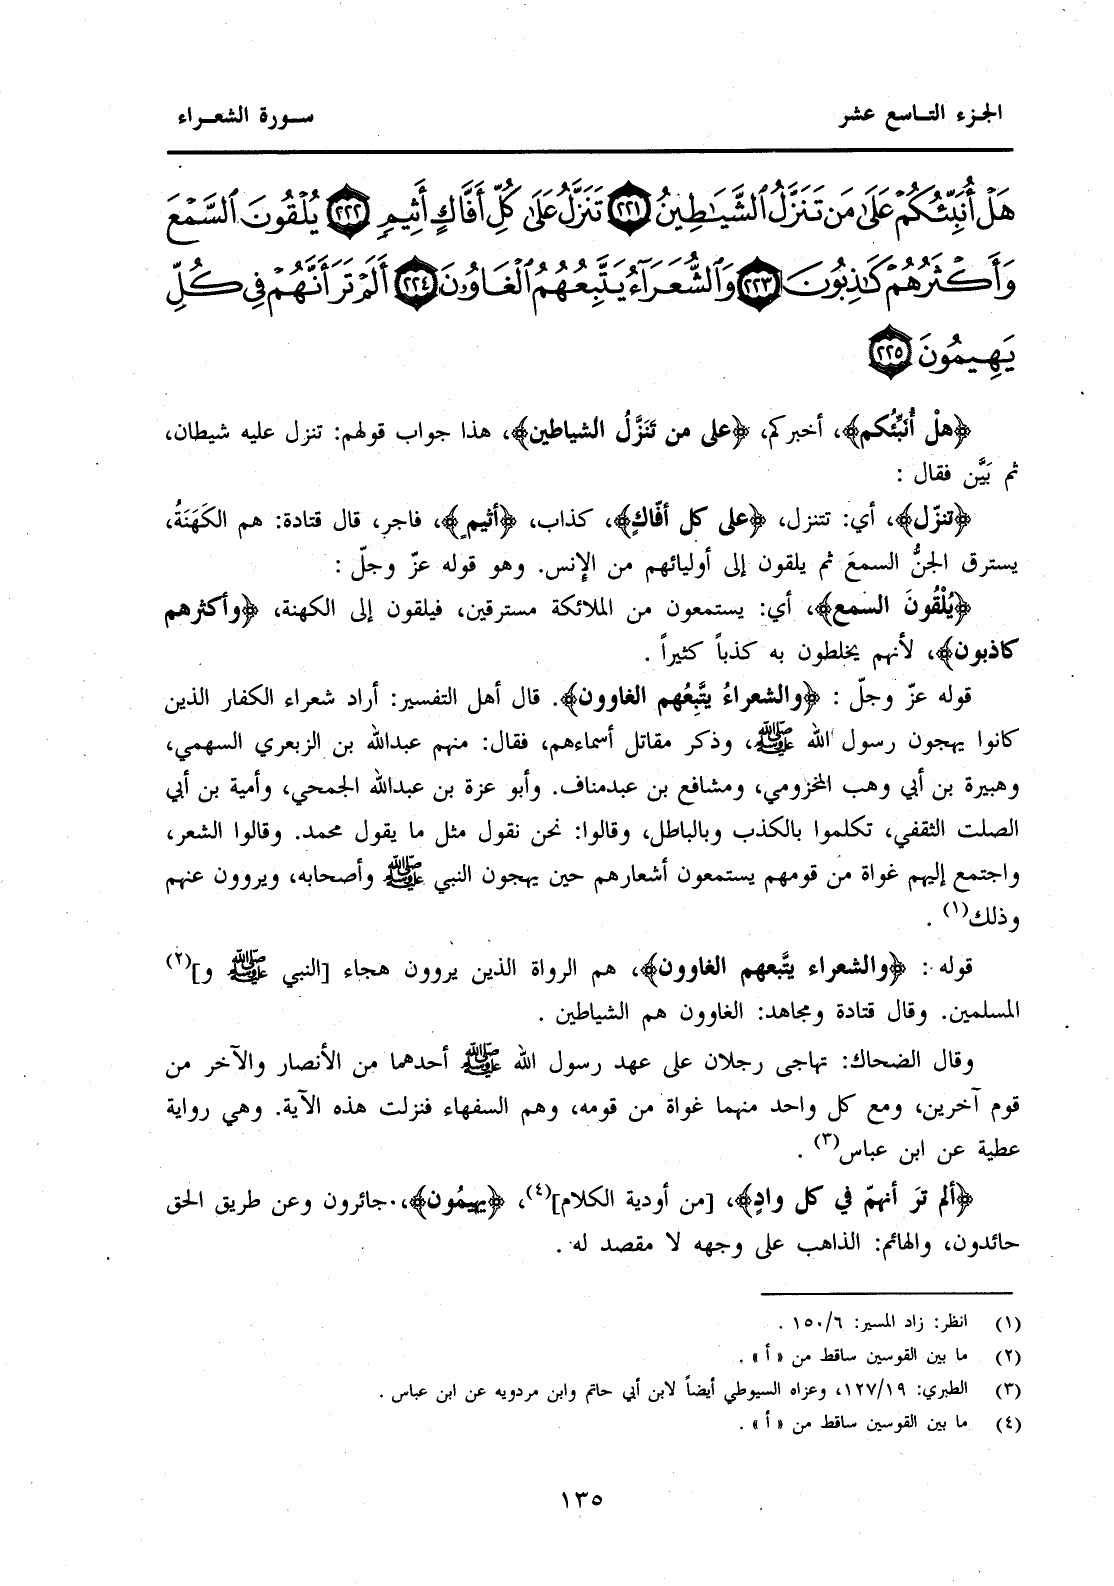 الجزء التاسع عشر
سورة الشعراء
هَلْ أُنَبِّئُكُمْ عَلَىٰ مَن تَنَزَّلُ ٱلشَّيَٰطِينُ ٢٢١ تَنَزَّلُ عَلَىٰ كُلِّ أَفَّاكٍ أَثِيمٍ ٢٢٢ يُلْقُونَ ٱلسَّمْعَ
وَأَكْثَرُهُمْ كَٰذِبُونَ ٢٢٣ وَٱلشُّعَرَآءُ يَتَّبِعُهُمُ ٱلْغَاوُۥنَ ٢٢٤ أَلَمْ تَرَ أَنَّهُمْ فِى كُلِّ
يَهِيمُونَ ٢٢٥
﴿هلْ أُنَبِّئُكم﴾، أخبركم، ﴿على من تَنَزَّلُ الشياطين﴾، هذا جواب قولهم: تنزل عليه شيطان،
ثم بَيَّن فقال :
﴿تنزّل﴾، أي: تتنزل، ﴿على كل أفّاكٍ﴾، كذاب، ﴿أثيم﴾، فاجر، قال قتادة: هم الكَهَنَةُ،
يسترق الجنُّ السمعَ ثم يلقون إلى أوليائهم من الإنس. وهو قوله عزّ وجلّ :
﴿يُلْقُونَ السمع﴾، أي: يستمعون من الملائكة مسترقين، فيلقون إلى الكهنة، ﴿وأكثرهم
كاذبون﴾، لأنهم يخلطون به كذباً كثيراً .
قوله عزّ وجلّ : ﴿والشعراءُ يتَّبِعُهم الغاوون﴾. قال أهل التفسير: أراد شعراء الكفار الذين
كانوا يهجون رسول الله ﷺ، وذكر مقاتل أسماءهم، فقال: منهم عبدالله بن الزبعري السهمي،
وهبيرة بن أبي وهب المخزومي، ومشافع بن عبدمناف. وأبو عزة بن عبدالله الجمحي، وأمية بن أبي
الصلت الثقفي، تكلموا بالكذب وبالباطل، وقالوا: نحن نقول مثل ما يقول محمد. وقالوا الشعر،
واجتمع إليهم غواة من قومهم يستمعون أشعارهم حين يهجون النبي ﷺ وأصحابه، ويروون عنهم
وذلك(١) .
قوله : ﴿والشعراء يتَّبعهم الغاوون﴾، هم الرواة الذين يروون هجاء [النبي ﷺ و](٢)
المسلمين. وقال قتادة ومجاهد: الغاوون هم الشياطين .
وقال الضحاك: تهاجى رجلان على عهد رسول الله ﷺ أحدهما من الأنصار والآخر من
قوم آخرين، ومع كل واحد منهما غواة من قومه، وهم السفهاء فنزلت هذه الآية. وهي رواية
عطية عن ابن عباس(٣) .
﴿ألم ترَ أنهمّ في كل وادٍ﴾، [من أودية الكلام](٤)، ﴿يهيمُون﴾، جائرون وعن طريق الحق
حائدون، والهائم: الذاهب على وجهه لا مقصد له .
(١) انظر: زاد المسير: ١٥٠/٦ .
(٢) ما بين القوسين ساقط من « أ » .
(٣) الطبري: ١٢٧/١٩، وعزاه السيوطي أيضاً لابن أبي حاتم وابن مردويه عن ابن عباس .
(٤) ما بين القوسين ساقط من « أ » .
١٣٥